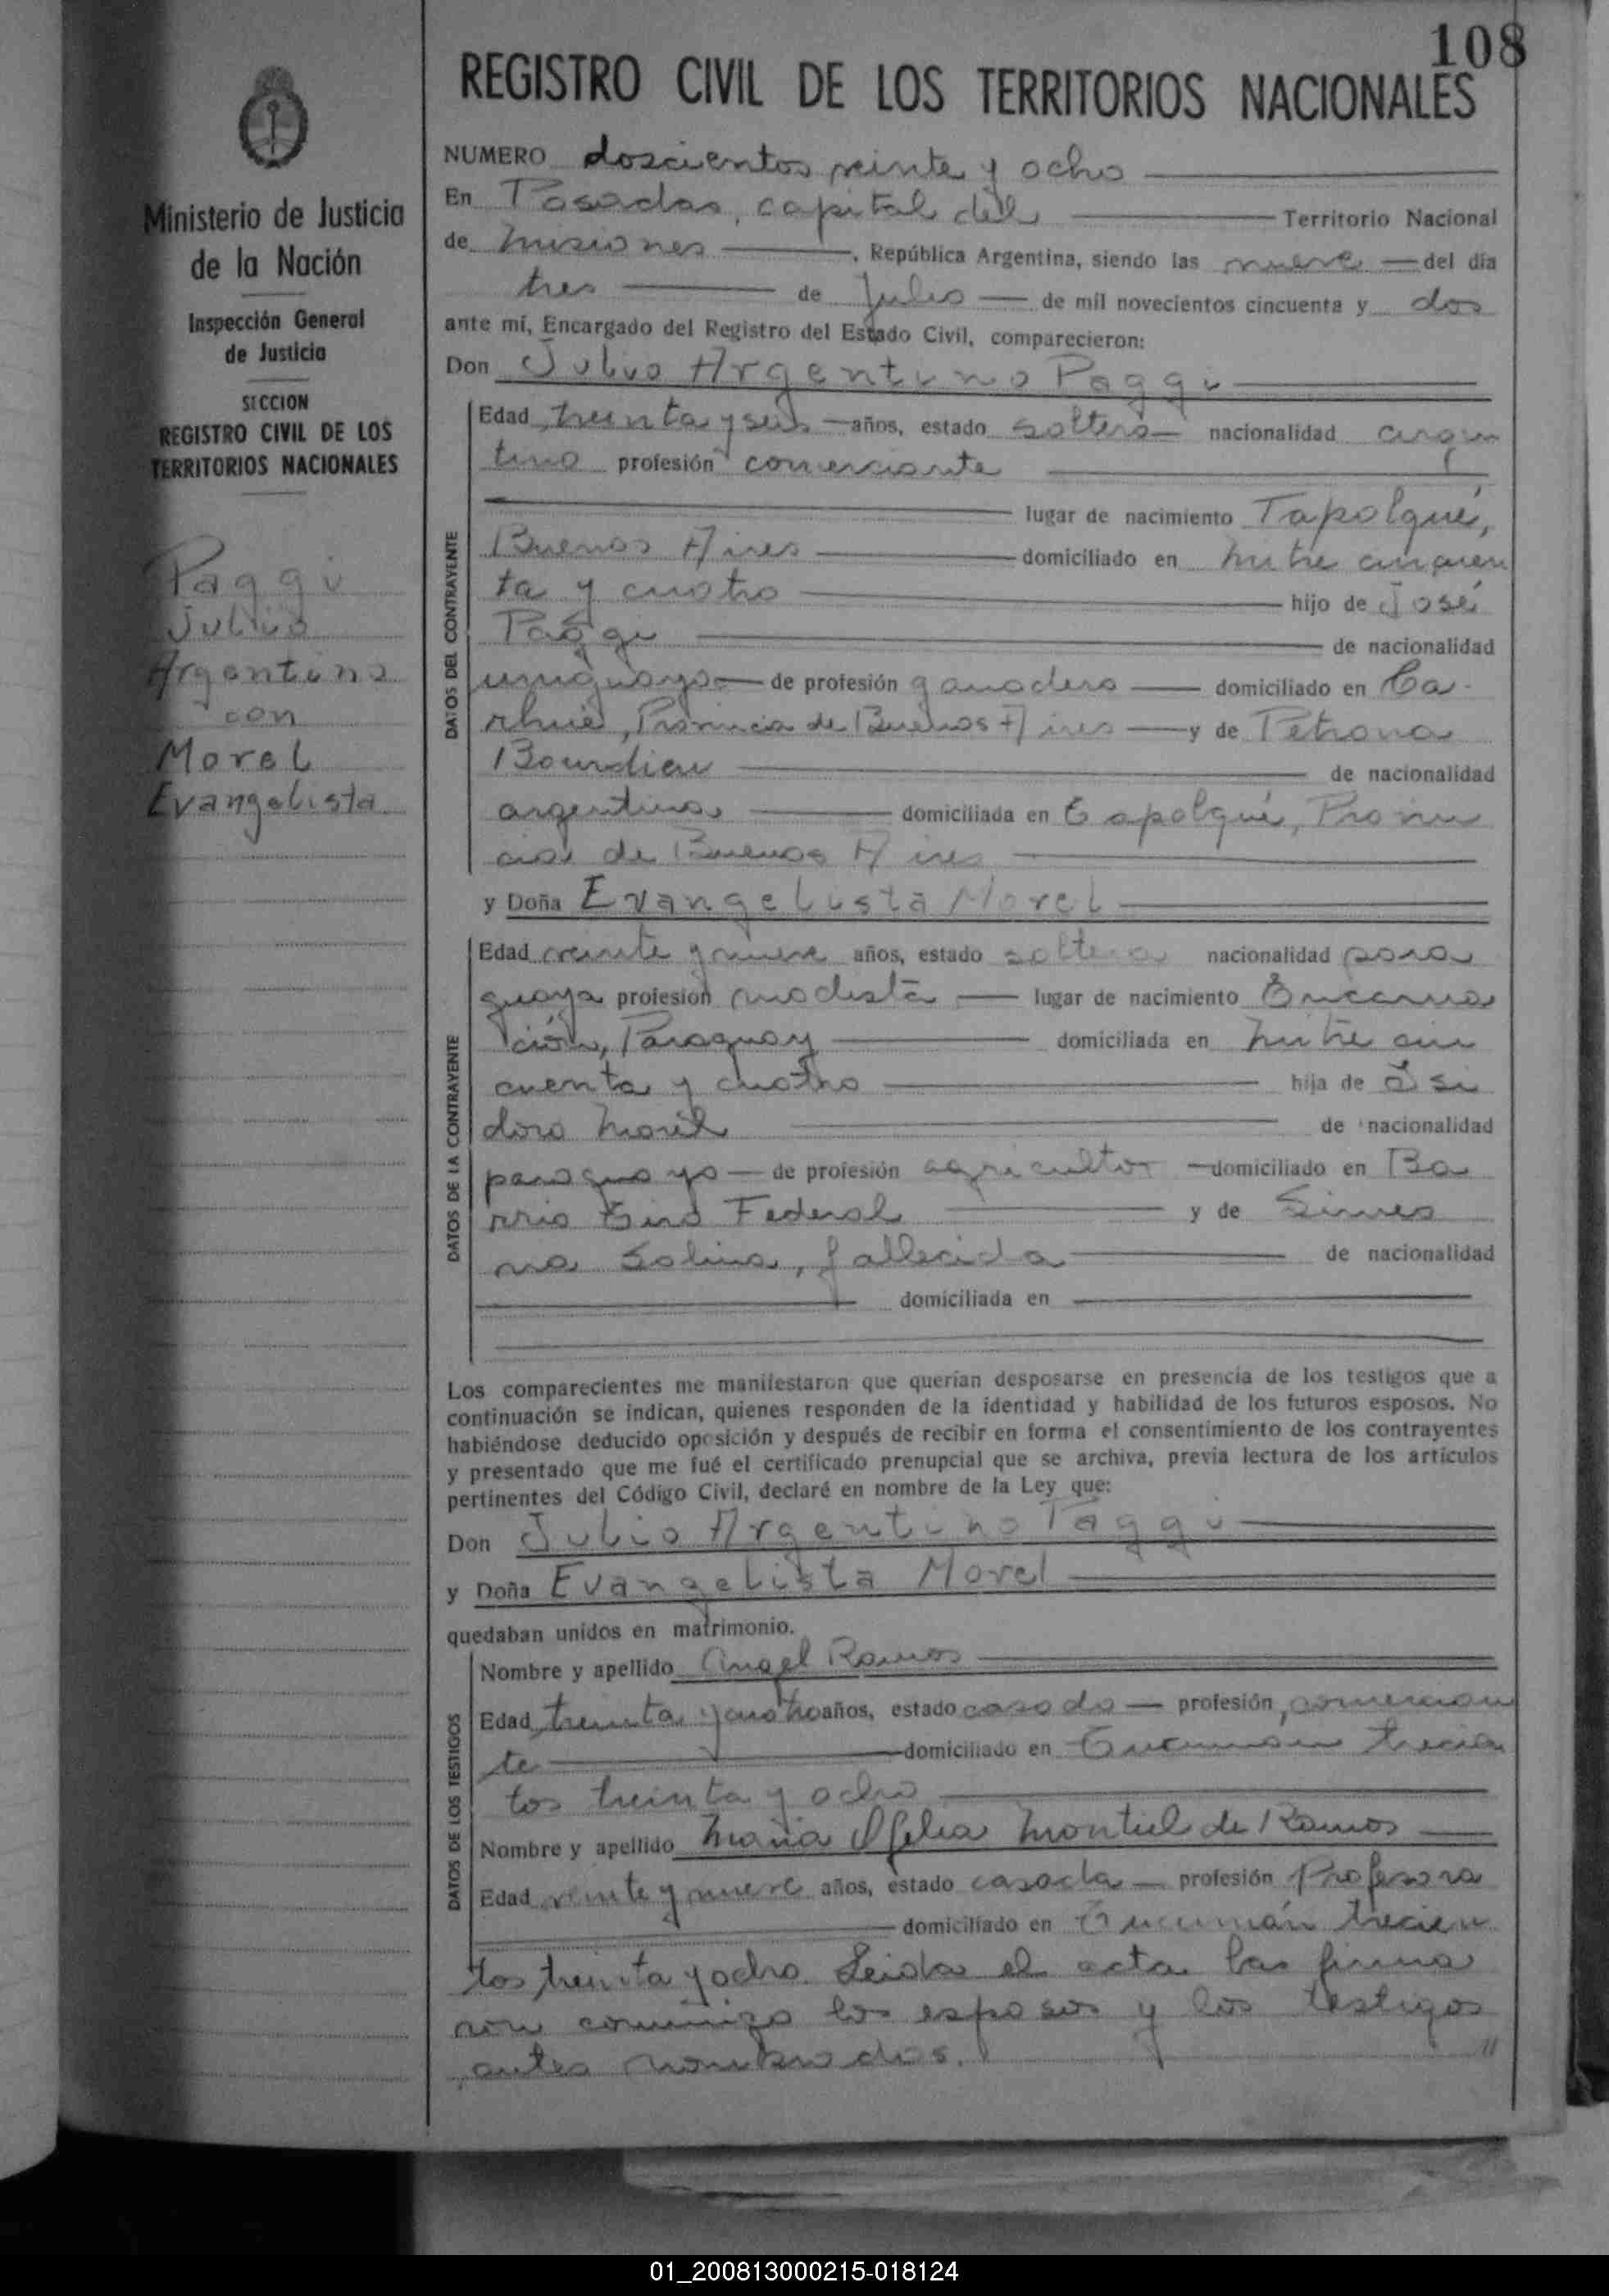 108
REGISTRO CIVIL DE LOS TERRITORIOS NACIONALES
Ministerio de Justicia
de la Nación
Inspección General
de Justicia
SECCION
REGISTRO CIVIL DE LOS
TERRITORIOS NACIONALES
Paggi
Julio
Argentino
con
Morel
Evangelista
NUMERO doscientos veinte y ocho
En Posadas, capital del Territorio Nacional
de Misiones, República Argentina, siendo las nueve del día
tres de Julio de mil novecientos cincuenta y dos
ante mí, Encargado del Registro del Estado Civil, comparecieron:
Don Julio Argentino Paggi
DATOS DEL CONTRAYENTE
Edad treinta y seis años, estado soltero nacionalidad argen
tino profesión comerciante
lugar de nacimiento Tapalqué,
Buenos Aires domiciliado en Mitre cincuen
ta y cuatro hijo de José
Paggi de nacionalidad
uruguayo de profesión ganadero domiciliado en Ca-
rhué, Provincia de Buenos Aires y de Petrona
Bourdieu de nacionalidad
argentina domiciliada en Tapalqué, Provin
cia de Buenos Aires
y Doña Evangelista Morel
DATOS DE LA CONTRAYENTE
Edad veinte y nueve años, estado soltera nacionalidad para
guaya profesión modista lugar de nacimiento Encarna
ción, Paraguay domiciliada en Mitre cin
cuenta y cuatro hija de Isi
doro Morel de nacionalidad
paraguayo de profesión agricultor domiciliado en Ba
rrio Tiro Federal y de
Solina, fallecida de nacionalidad
domiciliada en
Los comparecientes me manifestaron que querían desposarse en presencia de los testigos que a
continuación se indican, quienes responden de la identidad y habilidad de los futuros esposos. No
habiéndose deducido oposición y después de recibir en forma el consentimiento de los contrayentes
y presentado que me fué el certificado prenupcial que se archiva, previa lectura de los artículos
pertinentes del Código Civil, declaré en nombre de la Ley que:
Don Julio Argentino Paggi
y Doña Evangelista Morel
quedaban unidos en matrimonio.
DATOS DE LOS TESTIGOS
Nombre y apellido Angel Ramos
Edad treinta y cuatro años, estado casado profesión comercian
te domiciliado en Tucumán trecien
tos treinta y ocho
Nombre y apellido María Ofelia Montiel de Ramos
Edad veinte y nueve años, estado casada profesión Profesora
domiciliado en Tucumán trecien
tos treinta y ocho. Leida el acta las firma
ron conmigo los esposos y los testigos
antes nombrados.
01_200813000215-018124